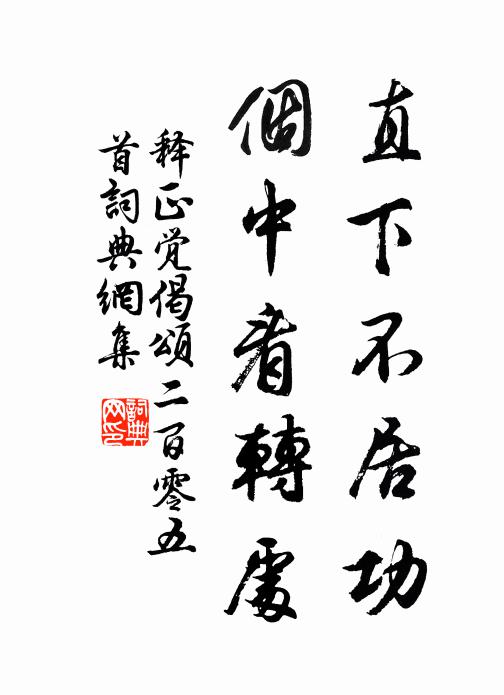 直下不居功
個中看轉處
释正觉偈頌二百零五
首詞典網集
詞典
网印